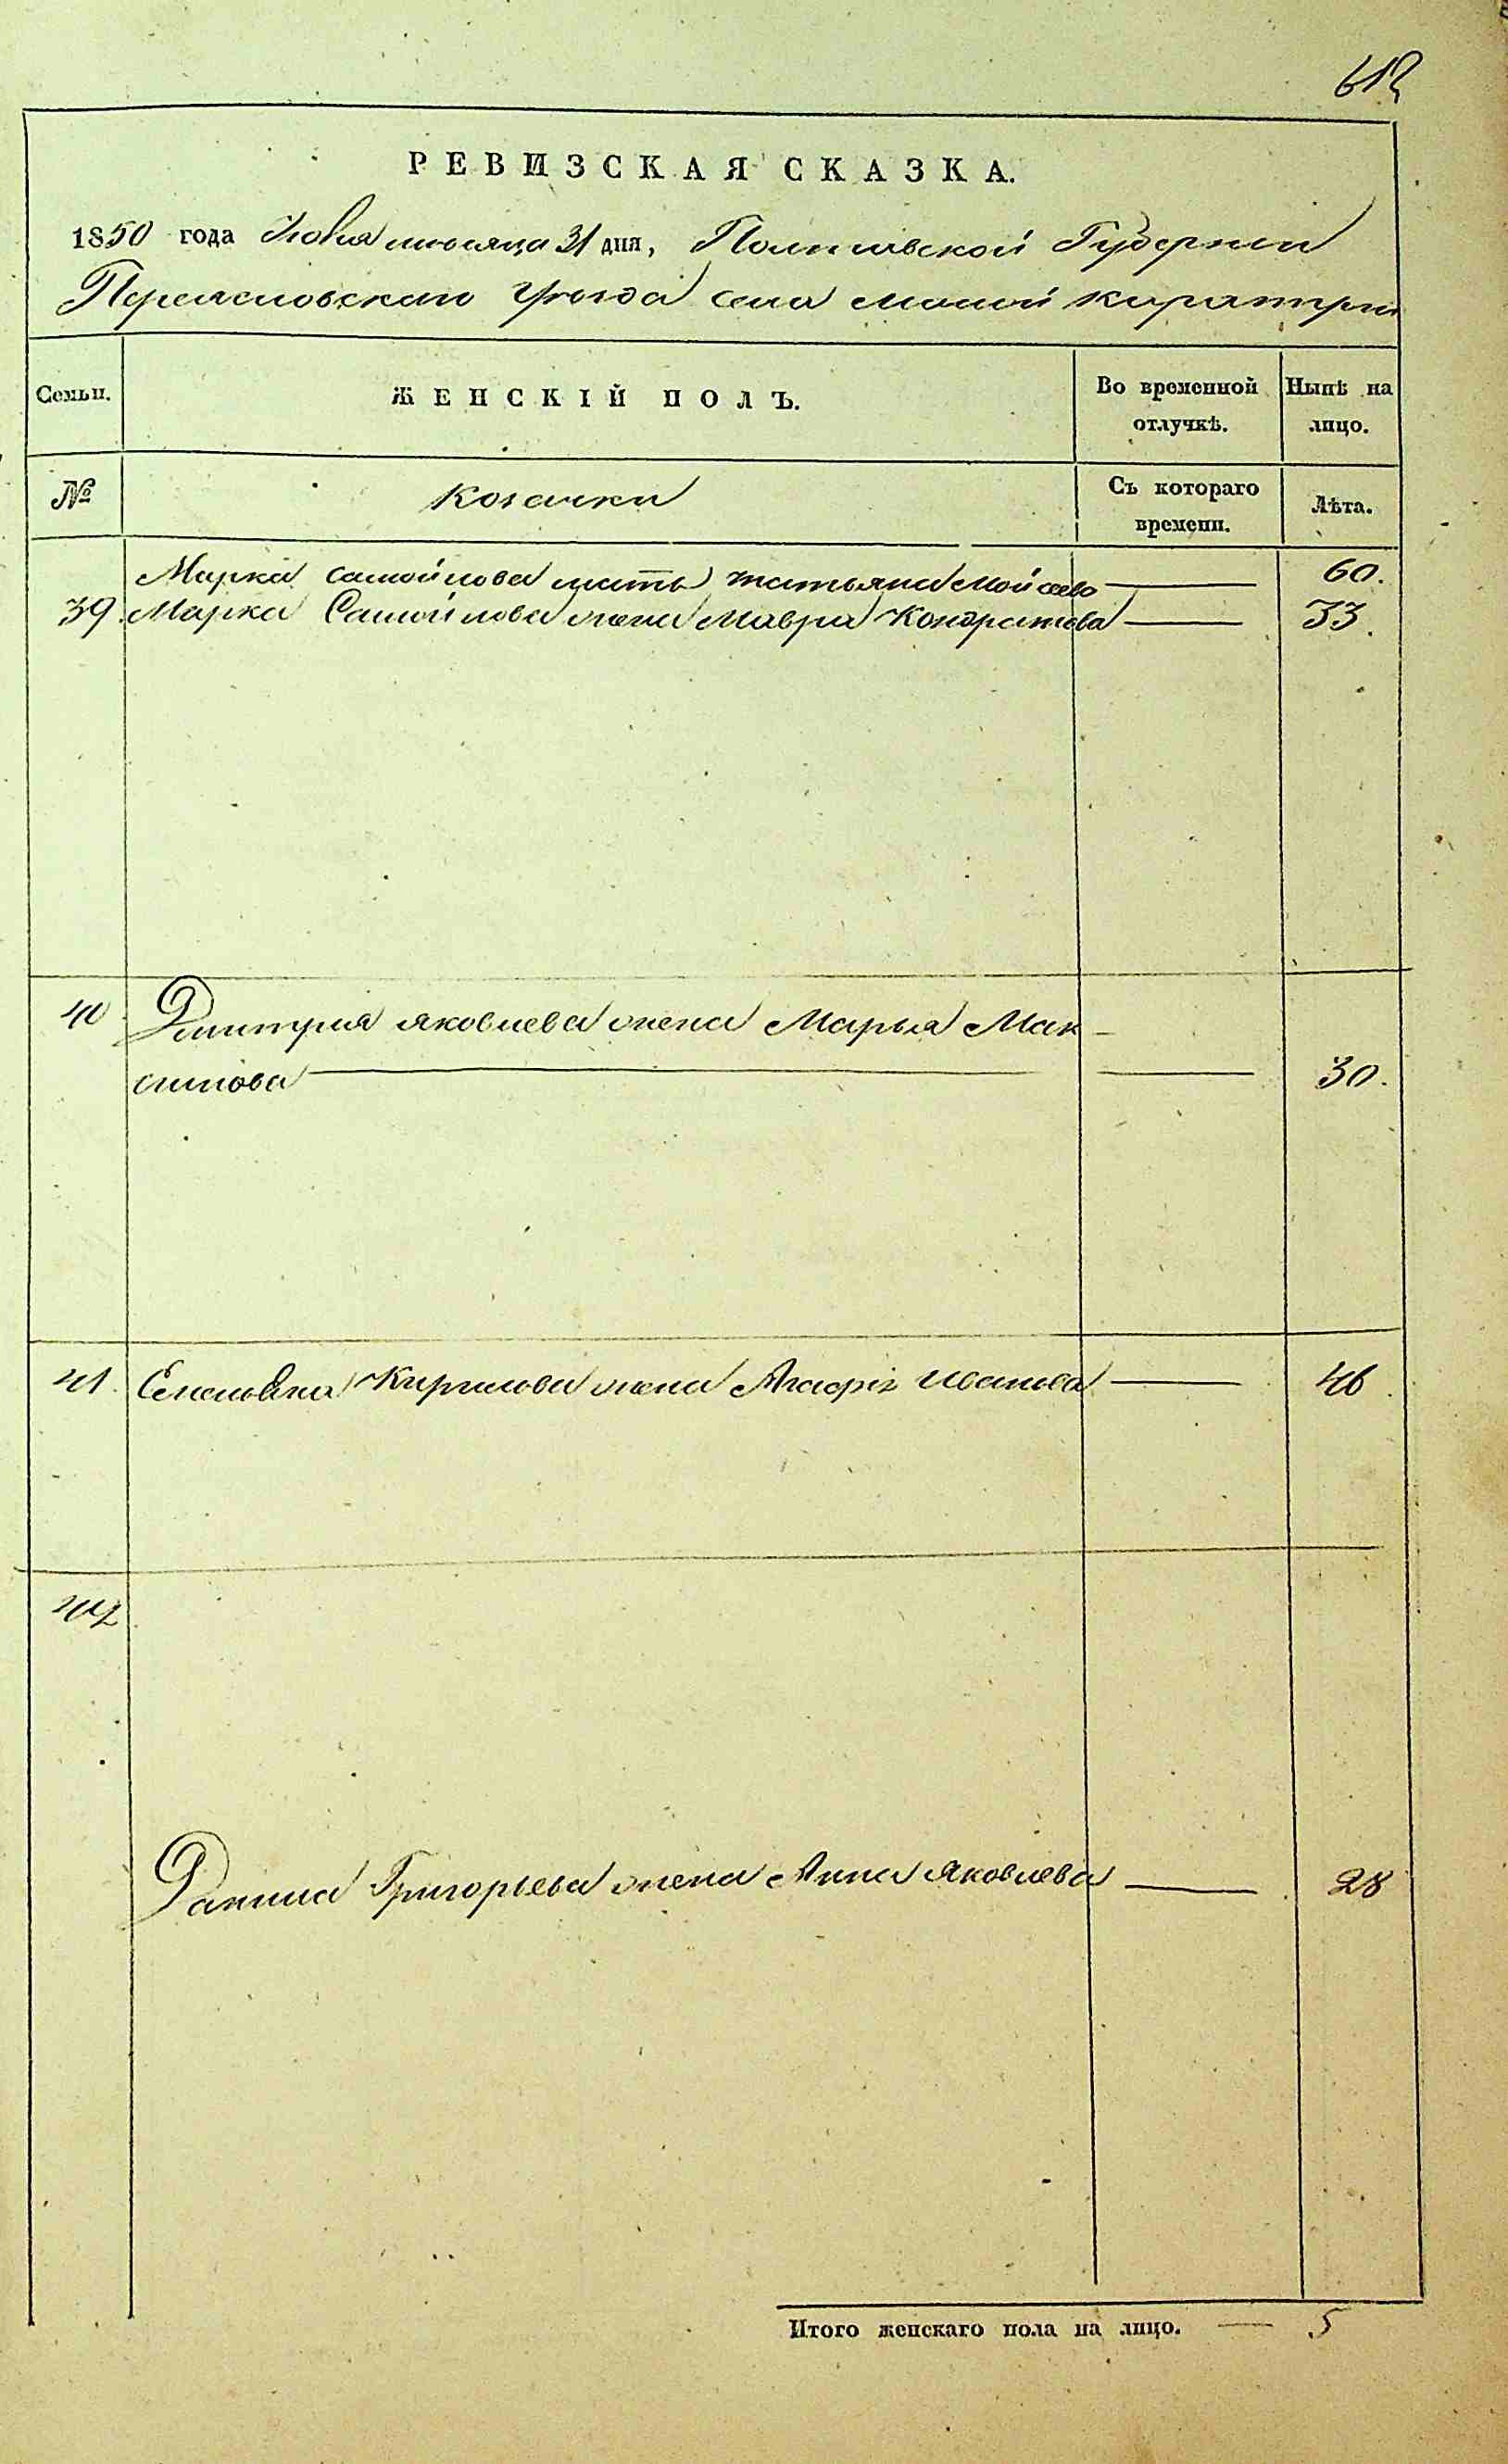 612
РЕВИЗСКАЯ СКАЗКА.
1850 года месяца 31 дня, Полтавской Губернии
Переясловскаго Уезда села малой каратули
Семьи. ЖЕНСКІЙ ПОЛЪ. Во временной отлучкѣ. Нынѣ на лицо.
№ Козачки Съ котораго времени. Лѣта.
Марка самойлова мать татьяна Мойсеева 60.
39. Марка Самойлова жена Мавра Кондратова 33.
40 Дмитрия яковлева жена Марья Мак
симова 30.
41. Кирилова жена Агафія Иванова 46
42
Данила Григорьева жена Анна Яковлева 28
Итого женскаго пола на лицо. 5